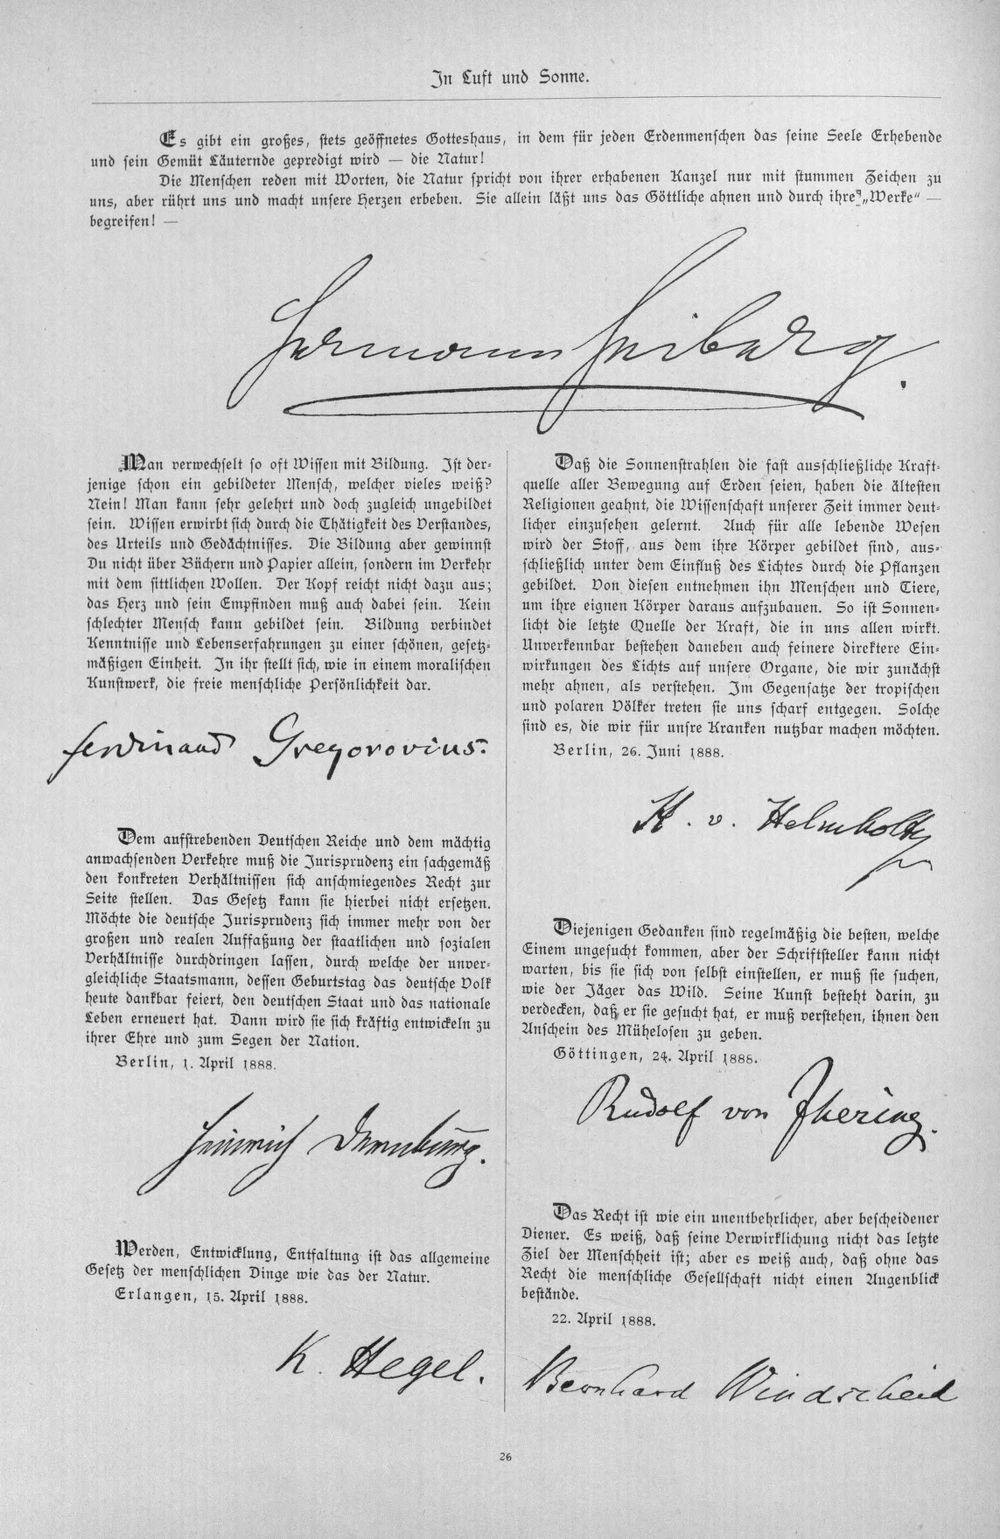 In Luft und Sonne.
Es gibt ein großes, stets geöffnetes Gotteshaus, in dem für jeden Erdenmenschen das seine Seele Erhebende
und sein Gemüt Läuternde gepredigt wird — die Natur!
Die Menschen reden mit Worten, die Natur spricht von ihrer erhabenen Kanzel nur mit stummen Zeichen zu
uns, aber rührt uns und macht unsere Herzen erbeben. Sie allein läßt uns das Göttliche ahnen und durch ihre „Werke“ —
begreifen! —
Hermann Heiberg.
Man verwechselt so oft Wissen mit Bildung. Ist der-
jenige schon ein gebildeter Mensch, welcher vieles weiß?
Nein! Man kann sehr gelehrt und doch zugleich ungebildet
sein. Wissen erwirbt sich durch die Thätigkeit des Verstandes,
des Urteils und Gedächtnisses. Die Bildung aber gewinnst
Du nicht über Büchern und Papier allein, sondern im Verkehr
mit dem sittlichen Wollen. Der Kopf reicht nicht dazu aus;
das Herz und sein Empfinden muß auch dabei sein. Kein
schlechter Mensch kann gebildet sein. Bildung verbindet
Kenntnisse und Lebenserfahrungen zu einer schönen, gesetz-
mäßigen Einheit. In ihr stellt sich, wie in einem moralischen
Kunstwerk, die freie menschliche Persönlichkeit dar.
Ferdinand Gregorovius.
Dem aufstrebenden Deutschen Reiche und dem mächtig
anwachsenden Verkehre muß die Jurisprudenz ein sachgemäß
den konkreten Verhältnissen sich anschmiegendes Recht zur
Seite stellen. Das Gesetz kann sie hierbei nicht ersetzen.
Möchte die deutsche Jurisprudenz sich immer mehr von der
großen und realen Auffaßung der staatlichen und sozialen
Verhältnisse durchdringen lassen, durch welche der unver-
gleichliche Staatsmann, dessen Geburtstag das deutsche Volk
heute dankbar feiert, den deutschen Staat und das nationale
Leben erneuert hat. Dann wird sie sich kräftig entwickeln zu
ihrer Ehre und zum Segen der Nation.
Berlin, 1. April 1888.
Heinrich Dernburg.
Werden, Entwicklung, Entfaltung ist das allgemeine
Gesetz der menschlichen Dinge wie das der Natur.
Erlangen, 15. April 1888.
K. Hegel.
Daß die Sonnenstrahlen die fast ausschließliche Kraft-
quelle aller Bewegung auf Erden seien, haben die ältesten
Religionen geahnt, die Wissenschaft unserer Zeit immer deut-
licher einzusehen gelernt. Auch für alle lebende Wesen
wird der Stoff, aus dem ihre Körper gebildet sind, aus-
schließlich unter dem Einfluß des Lichtes durch die Pflanzen
gebildet. Von diesen entnehmen ihn Menschen und Tiere,
um ihre eignen Körper daraus aufzubauen. So ist Sonnen-
licht die letzte Quelle der Kraft, die in uns allen wirkt.
Unverkennbar bestehen daneben auch feinere direktere Ein-
wirkungen des Lichts auf unsere Organe, die wir zunächst
mehr ahnen, als verstehen. Im Gegensatze der tropischen
und polaren Völker treten sie uns scharf entgegen. Solche
sind es, die wir für unsre Kranken nutzbar machen möchten.
Berlin, 26. Juni 1888.
H. v. Helmholtz
Diejenigen Gedanken sind regelmäßig die besten, welche
Einem ungesucht kommen, aber der Schriftsteller kann nicht
warten, bis sie sich von selbst einstellen, er muß sie suchen,
wie der Jäger das Wild. Seine Kunst besteht darin, zu
verdecken, daß er sie gesucht hat, er muß verstehen, ihnen den
Anschein des Mühelosen zu geben.
Göttingen, 24. April 1888.
Rudolf von Jhering.
Das Recht ist wie ein unentbehrlicher, aber bescheidener
Diener. Es weiß, daß seine Verwirklichung nicht das letzte
Ziel der Menschheit ist; aber es weiß auch, daß ohne das
Recht die menschliche Gesellschaft nicht einen Augenblick
bestände.
22. April 1888.
Bernhard Windscheid
26